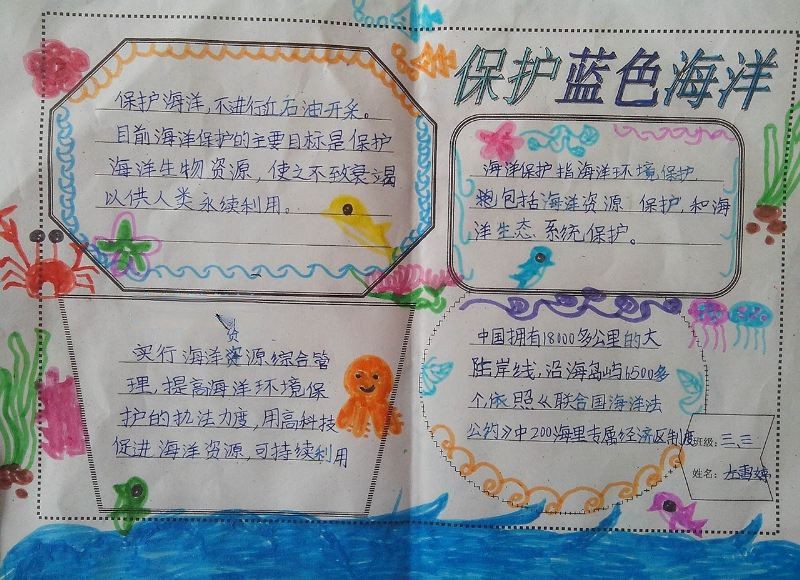 保护蓝色海洋
保护海洋，不进行近石油开采。
目前海洋保护的主要目标是保护
海洋生物资源，使之不致衰竭
以供人类永续利用。
海洋保护指海洋环境保护，
包括海洋资源 保护，和海
洋生态 系统保护。
资
实行海洋源综合管
理，提高海洋环境保
护的执法力度，用高科技
促进海洋资源，可持续利用
中国拥有18000多公里的大
陆岸线，沿海岛屿6500多
个，依照《联合国海洋法
公约》中200海里专属经济区制度
班级：三、三
姓名：